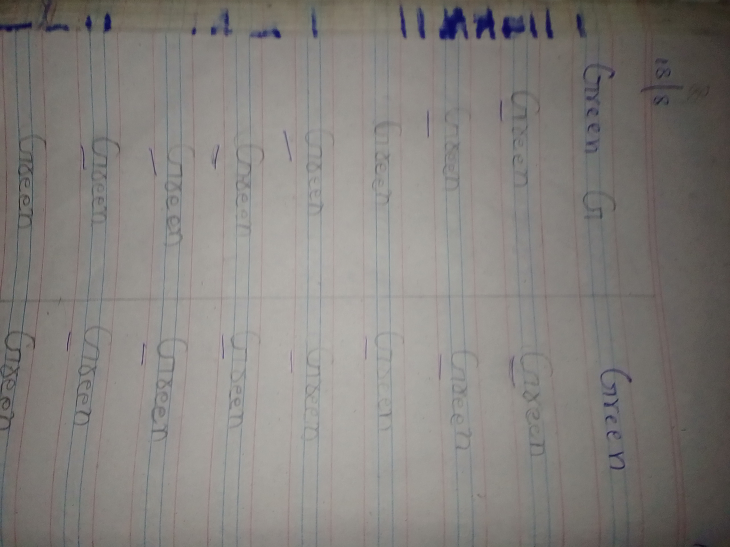 18/8
Green G Green
Green Green
Green Green
Green Green
Green Green
Green Green
Green Green
Green Green
Green Green